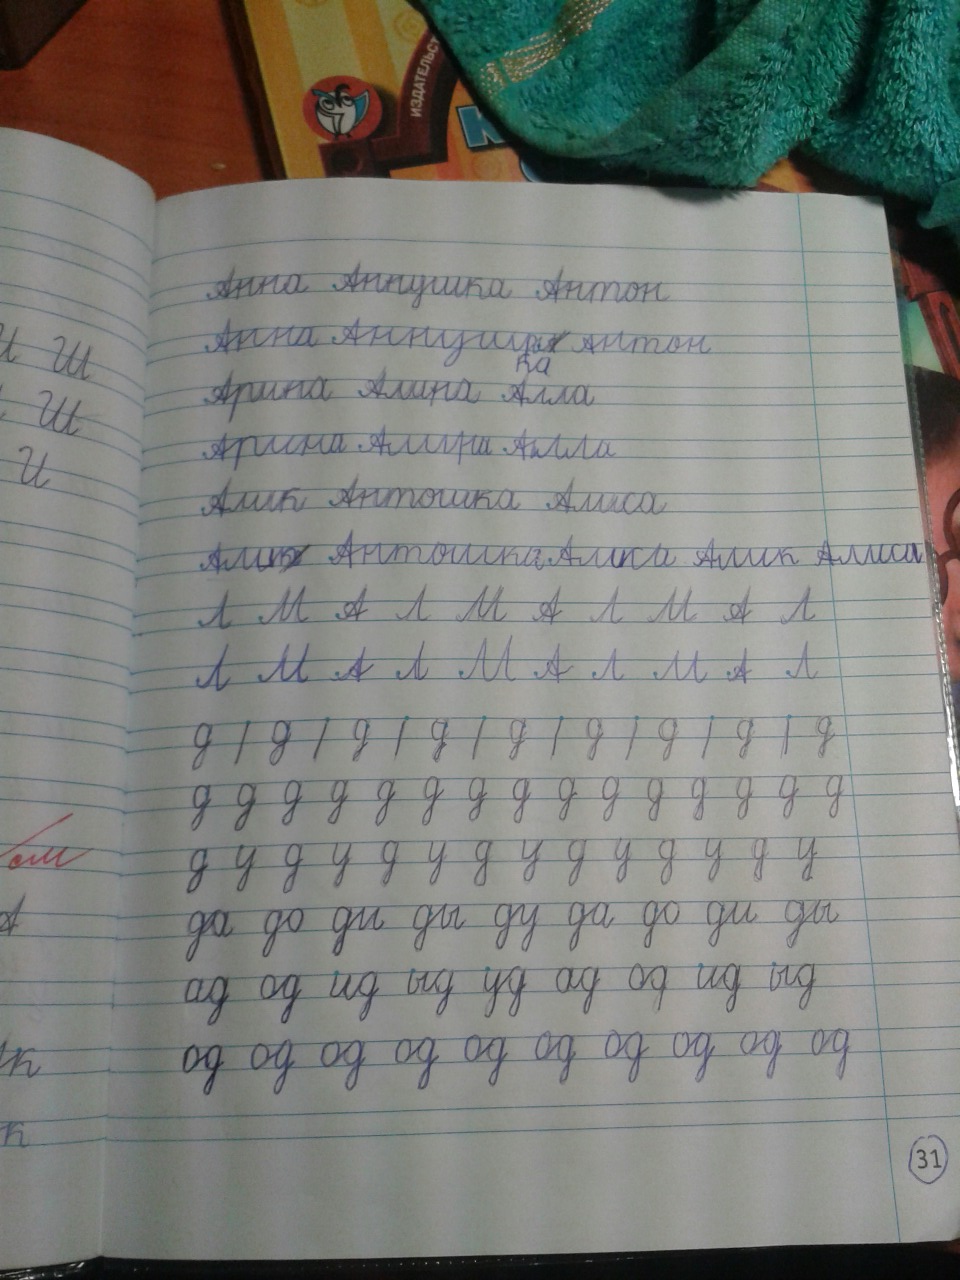 ИЗДАТЕЛЬС
К
Анна Аннушка Антон
Анна Аннушка Антон
ка
Арина Алина Алла
Арина Алина Алла
Алик Антошка Алиса
Алик Антошка Алиса Алик Алиса
Л М А Л М А Л М А Л
Л М А Л М А Л М А Л
д | д | д | д | д | д | д | д | д
д д д д д д д д д д д д д д д
д у д у д у д у д у д у д у
да до ди ды ду да до ди ды
ад од ид ыд уд ад од ид ыд
од од од од од од од од од од
31
Ш
Ш
И
ом
А
к
к